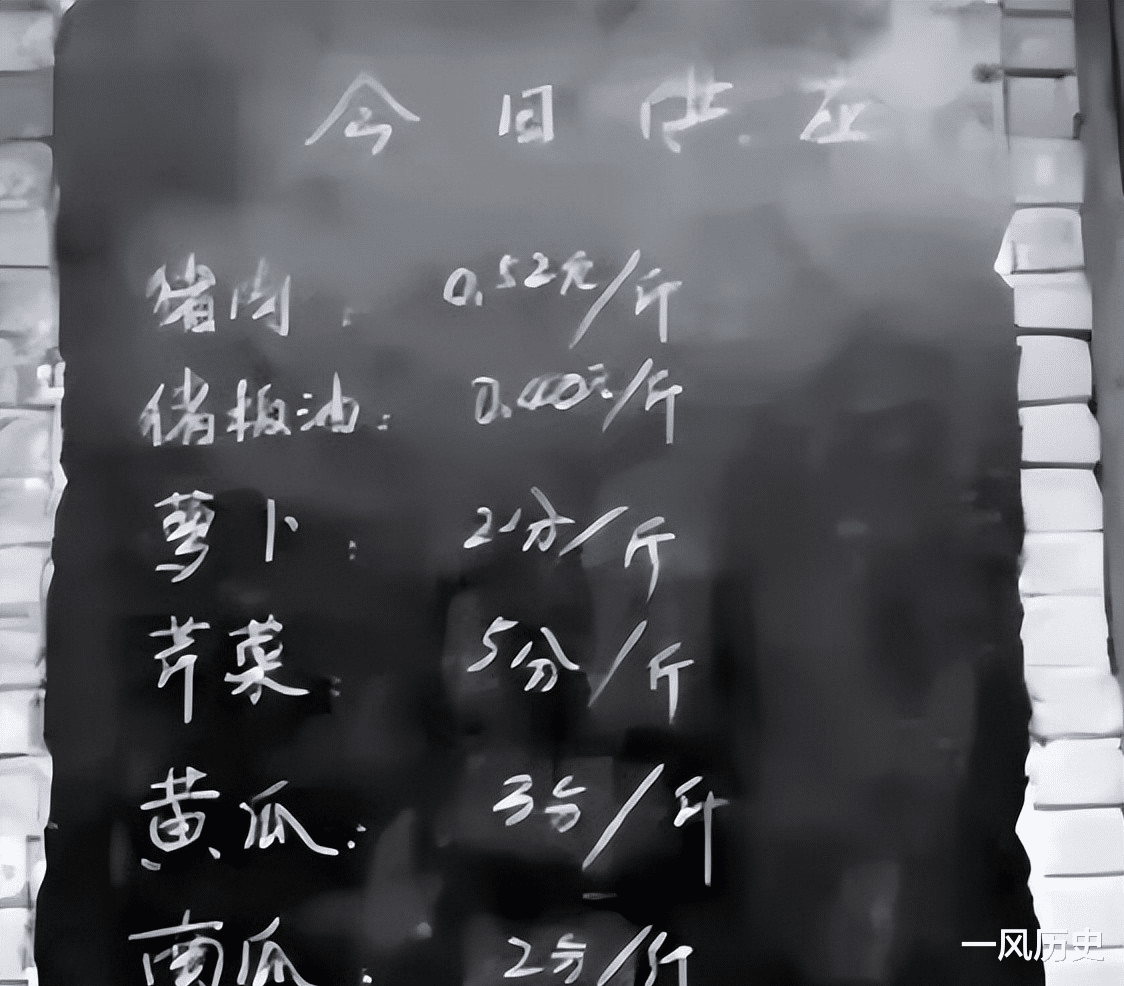 今日供应
猪肉：0.52元/斤
猪板油：元/斤
萝卜：2分/斤
芹菜：5分/斤
黄瓜：3分/斤
南瓜：2分/斤
一风历史